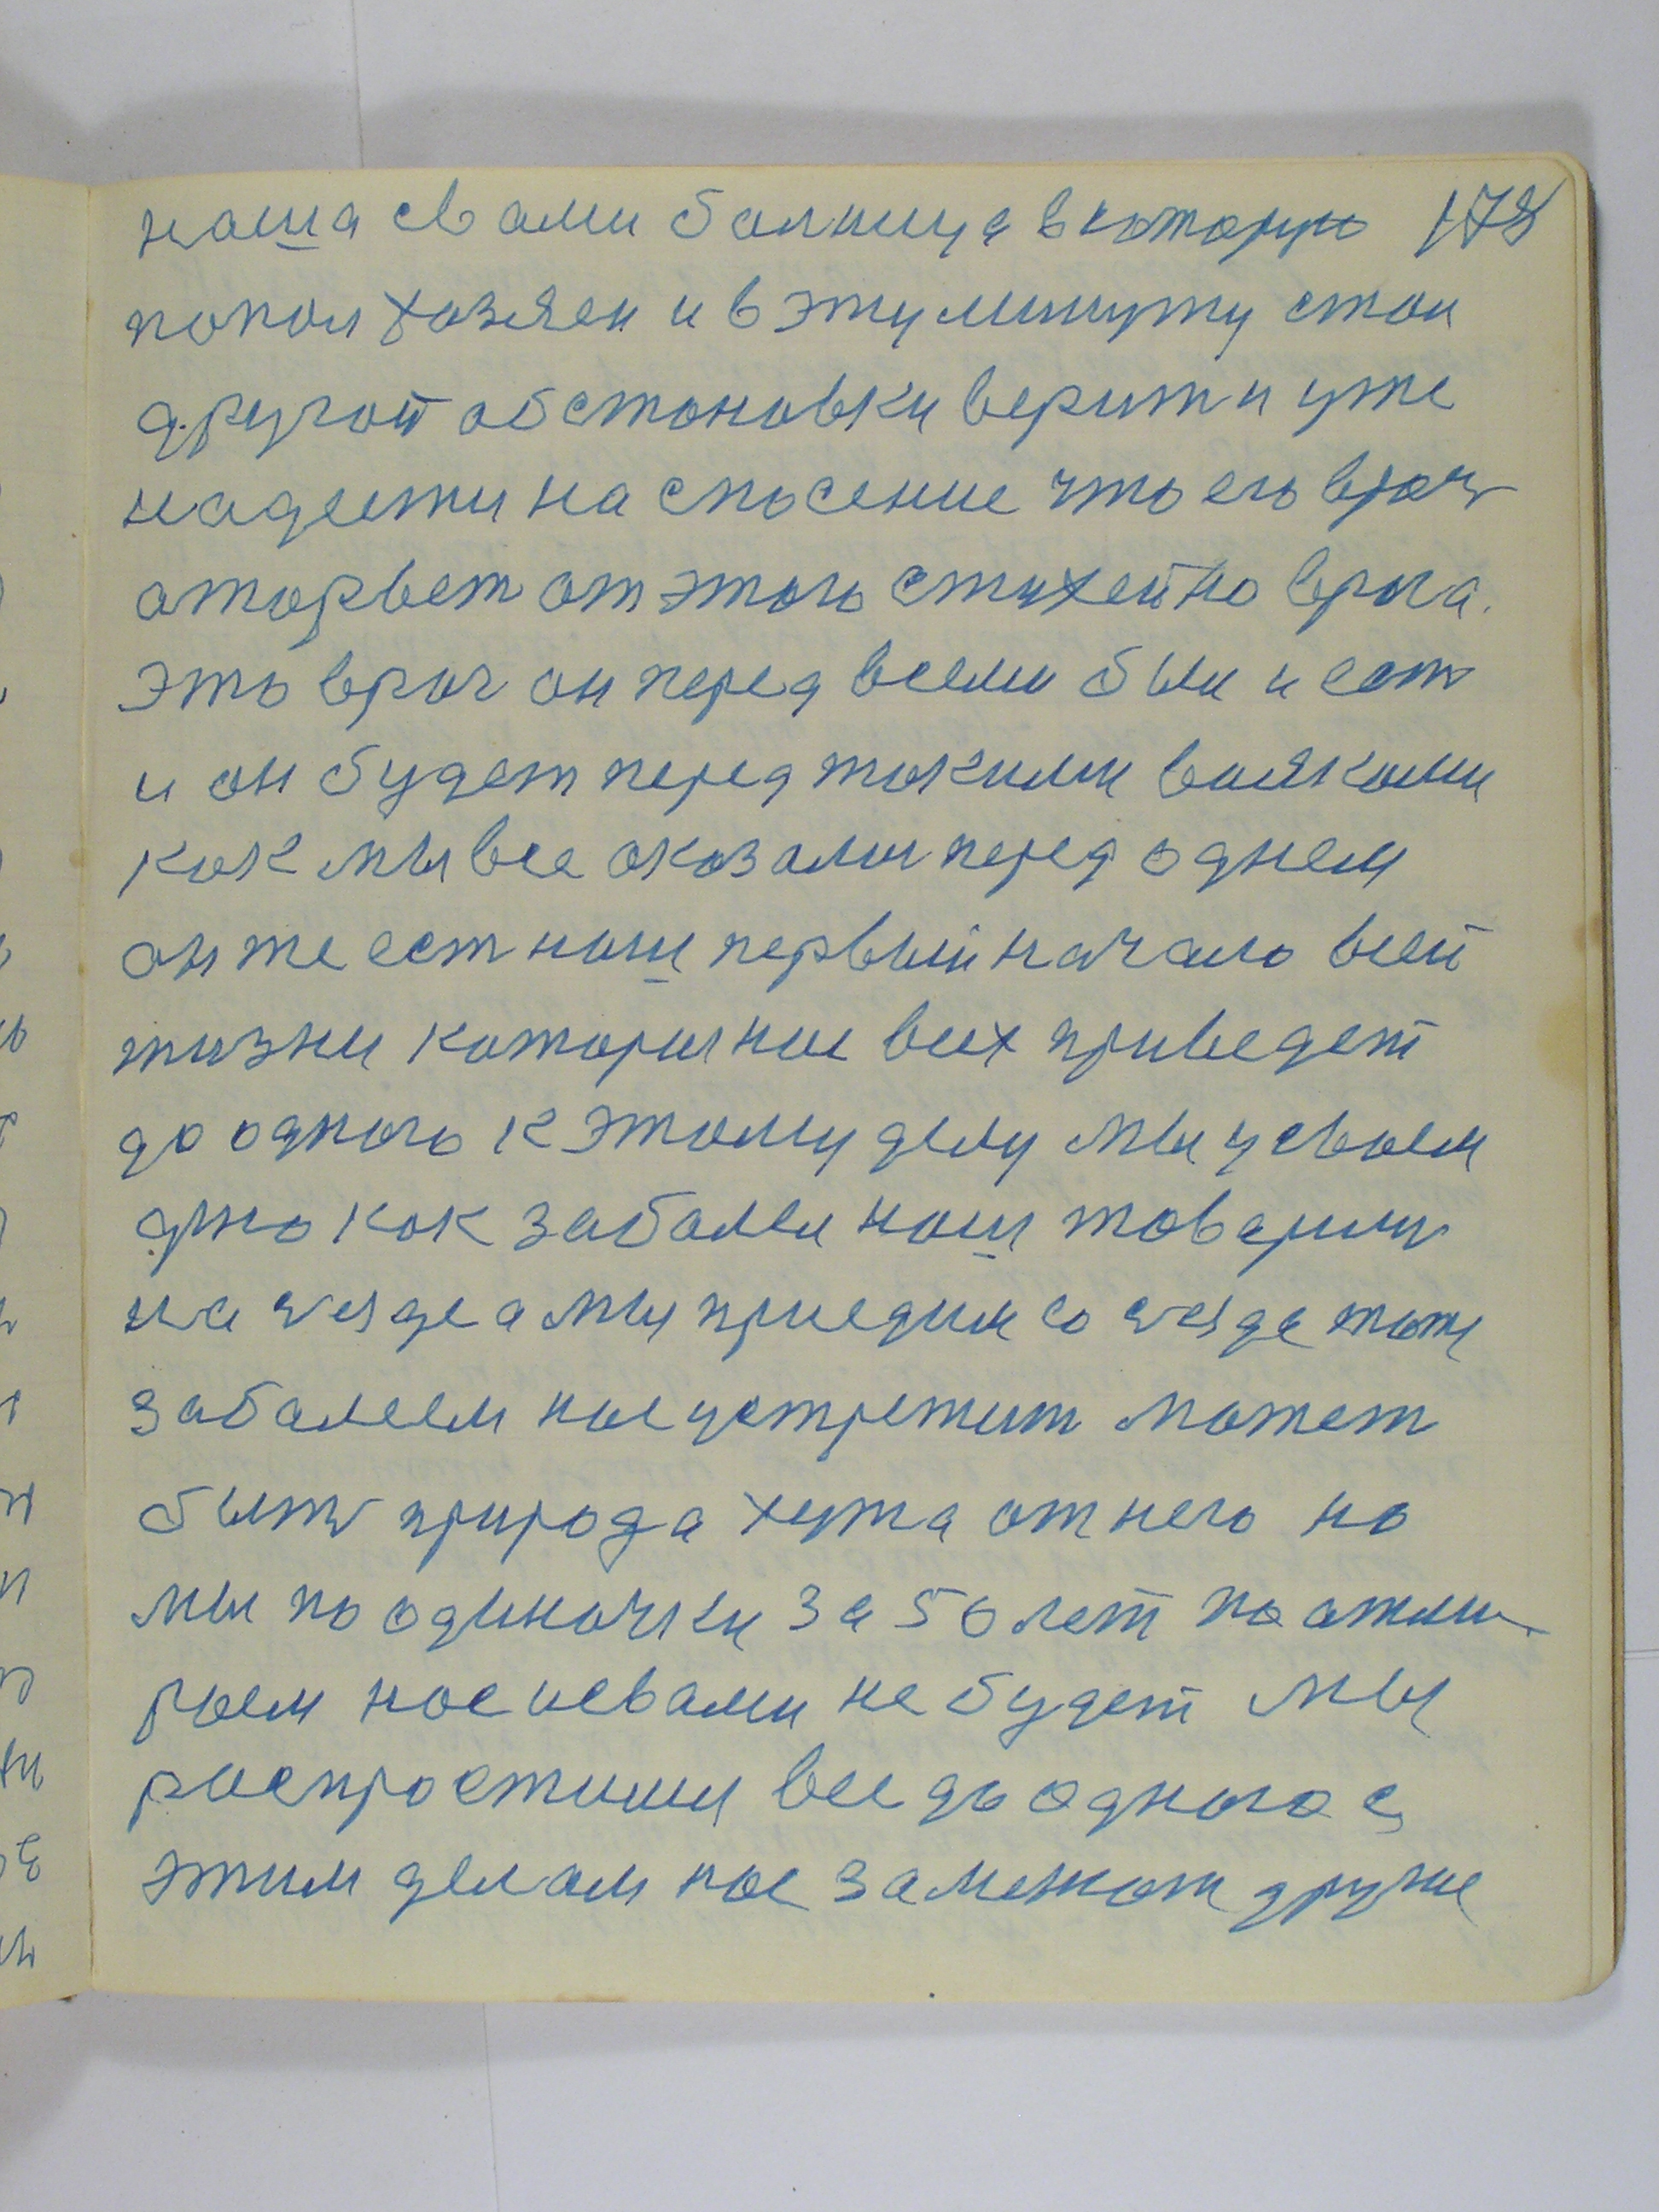 наша свами болница вкоторую 178
попол хазяен и в эту минуту стои
другой обстоновки верит и уже
надеяти на спосение что его врач
аторвет от этого стихейно врага.
Это враг он перед всеми был и ест
и он будет перед такими вояками
как мы все оказали перед однем
он же ест наш первый начало всей
жизни каторыя нас всех приведет
до одного к этому делу мы усвоем
дно как заболел наш товарищ
на везде а мы приедим со везде тоже
заболеем нас устретит может
быть природа хужа от него но
мы по одиночки за 50 лет по отми
раем нас исвами не будет мы
распростимы все до одного с
этим делам нас заменют другие